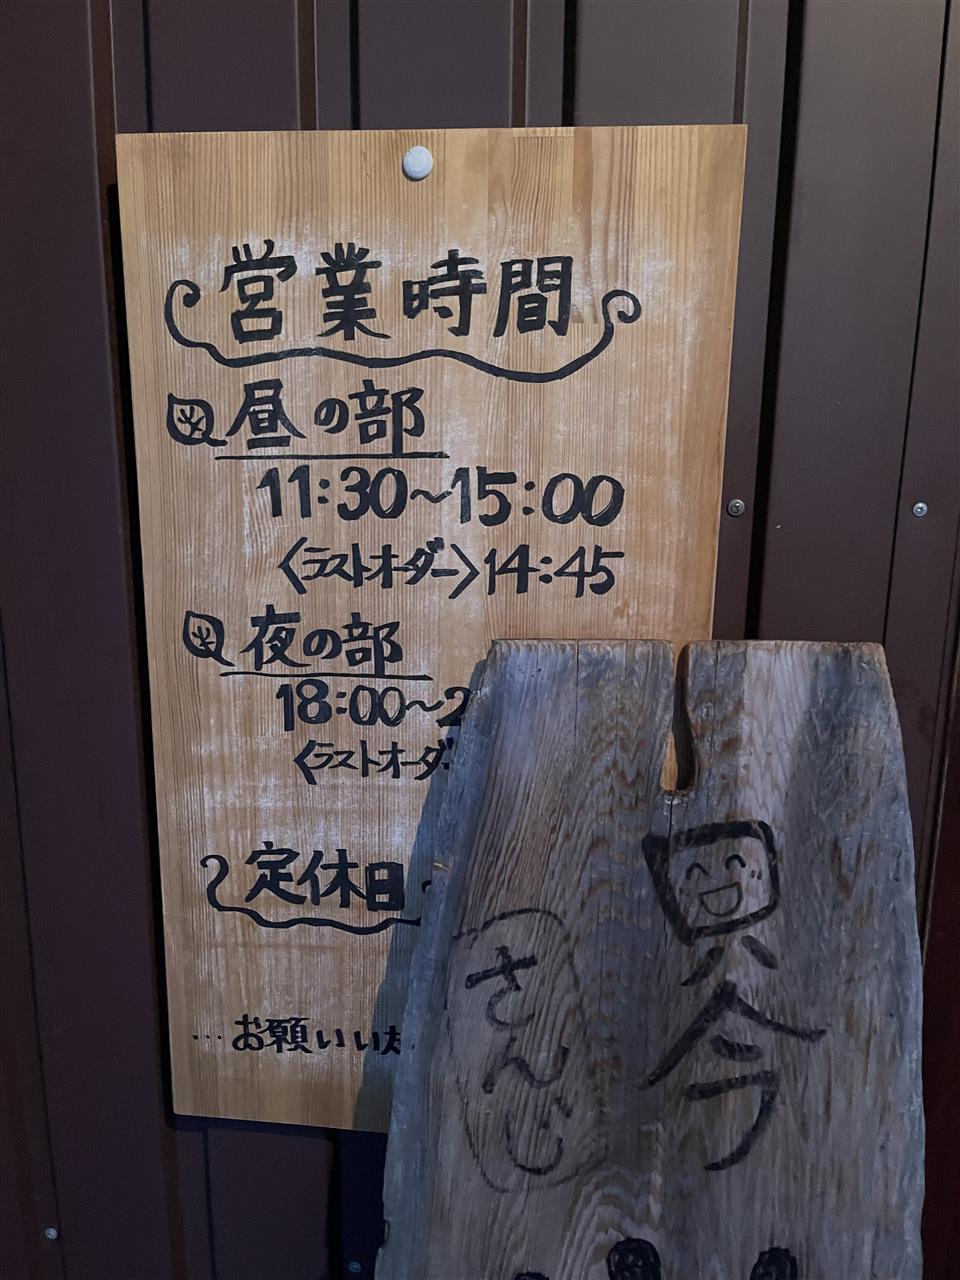 営業時間
昼の部
11:30〜15:00
〈ラストオーダー〉14:45
夜の部
18:00〜2
〈ラストオーダ
定休日
…お願いいた
只今
さんじ